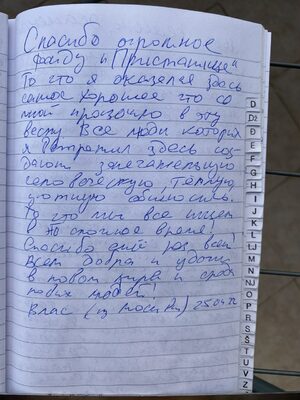 Спасибо огромное
фонду "Пристанище"
То что я оказался здесь
самое хорошее что со
мной произошло в эту
весну. Все люди которых
я встретил здесь соз-
дают замечательную
человеческую, теплую,
уютную
То что мы все ищем
в не спокойное время!
Спасибо ещё раз всем!
Всем добра и удачи
в новом мире и среди
новых людей!
Влас (из Москвы) 25.04.22
D
Dž
Đ
E
F
G
H
I
J
K
L
LJ
M
N
NJ
O
P
R
S
Š
T
U
V
Z